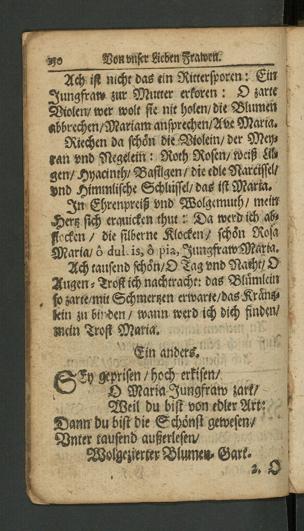 250 Von vnser Lieben Frawen.
Ach ist nicht das ein Rittersporen: Ein
Jungfraw zur Mutter erkoren: O zarte
Violen/ wer wolt sie nit holen/ die Blumen
abbrechen/ Mariam ansprechen/ Ave Maria.
Riechen da schön die Violein/ der Mey-
ran vnd Negelein: Roth Rosen/ weiß Lil-
gen/ Hyacinth/ Basilgen/ die edle Narcissel/
vnd Himmlische Schlüssel/ das ist Maria.
In Ehrenpreiß vnd Wolgemuth/ mein
Hertz sich erquicken thut: Da werd ich ab-
flocken/ die silberne Klocken/ schön Rosa
Maria/ ô dulcis, ô pia, Jungfraw Maria.
Ach tausend schön/ O Tag vnd Nacht/ O
Augen-Trost ich nachtracht: das Blümlein
so zarte/ mit Schmerzen erwarte/ das Kräntz-
lein zu binden/ wann werd ich dich finden/
mein Trost Maria.
Ein anders.
SEy geprisen/ hoch erkisen/
O Maria Jungfraw zart/
Weil du bist von edler Art:
Dann du bist die Schönst gewesen/
Vnter tausend außerlesen/
Wolgezierter Blumen-Gart.
2. O